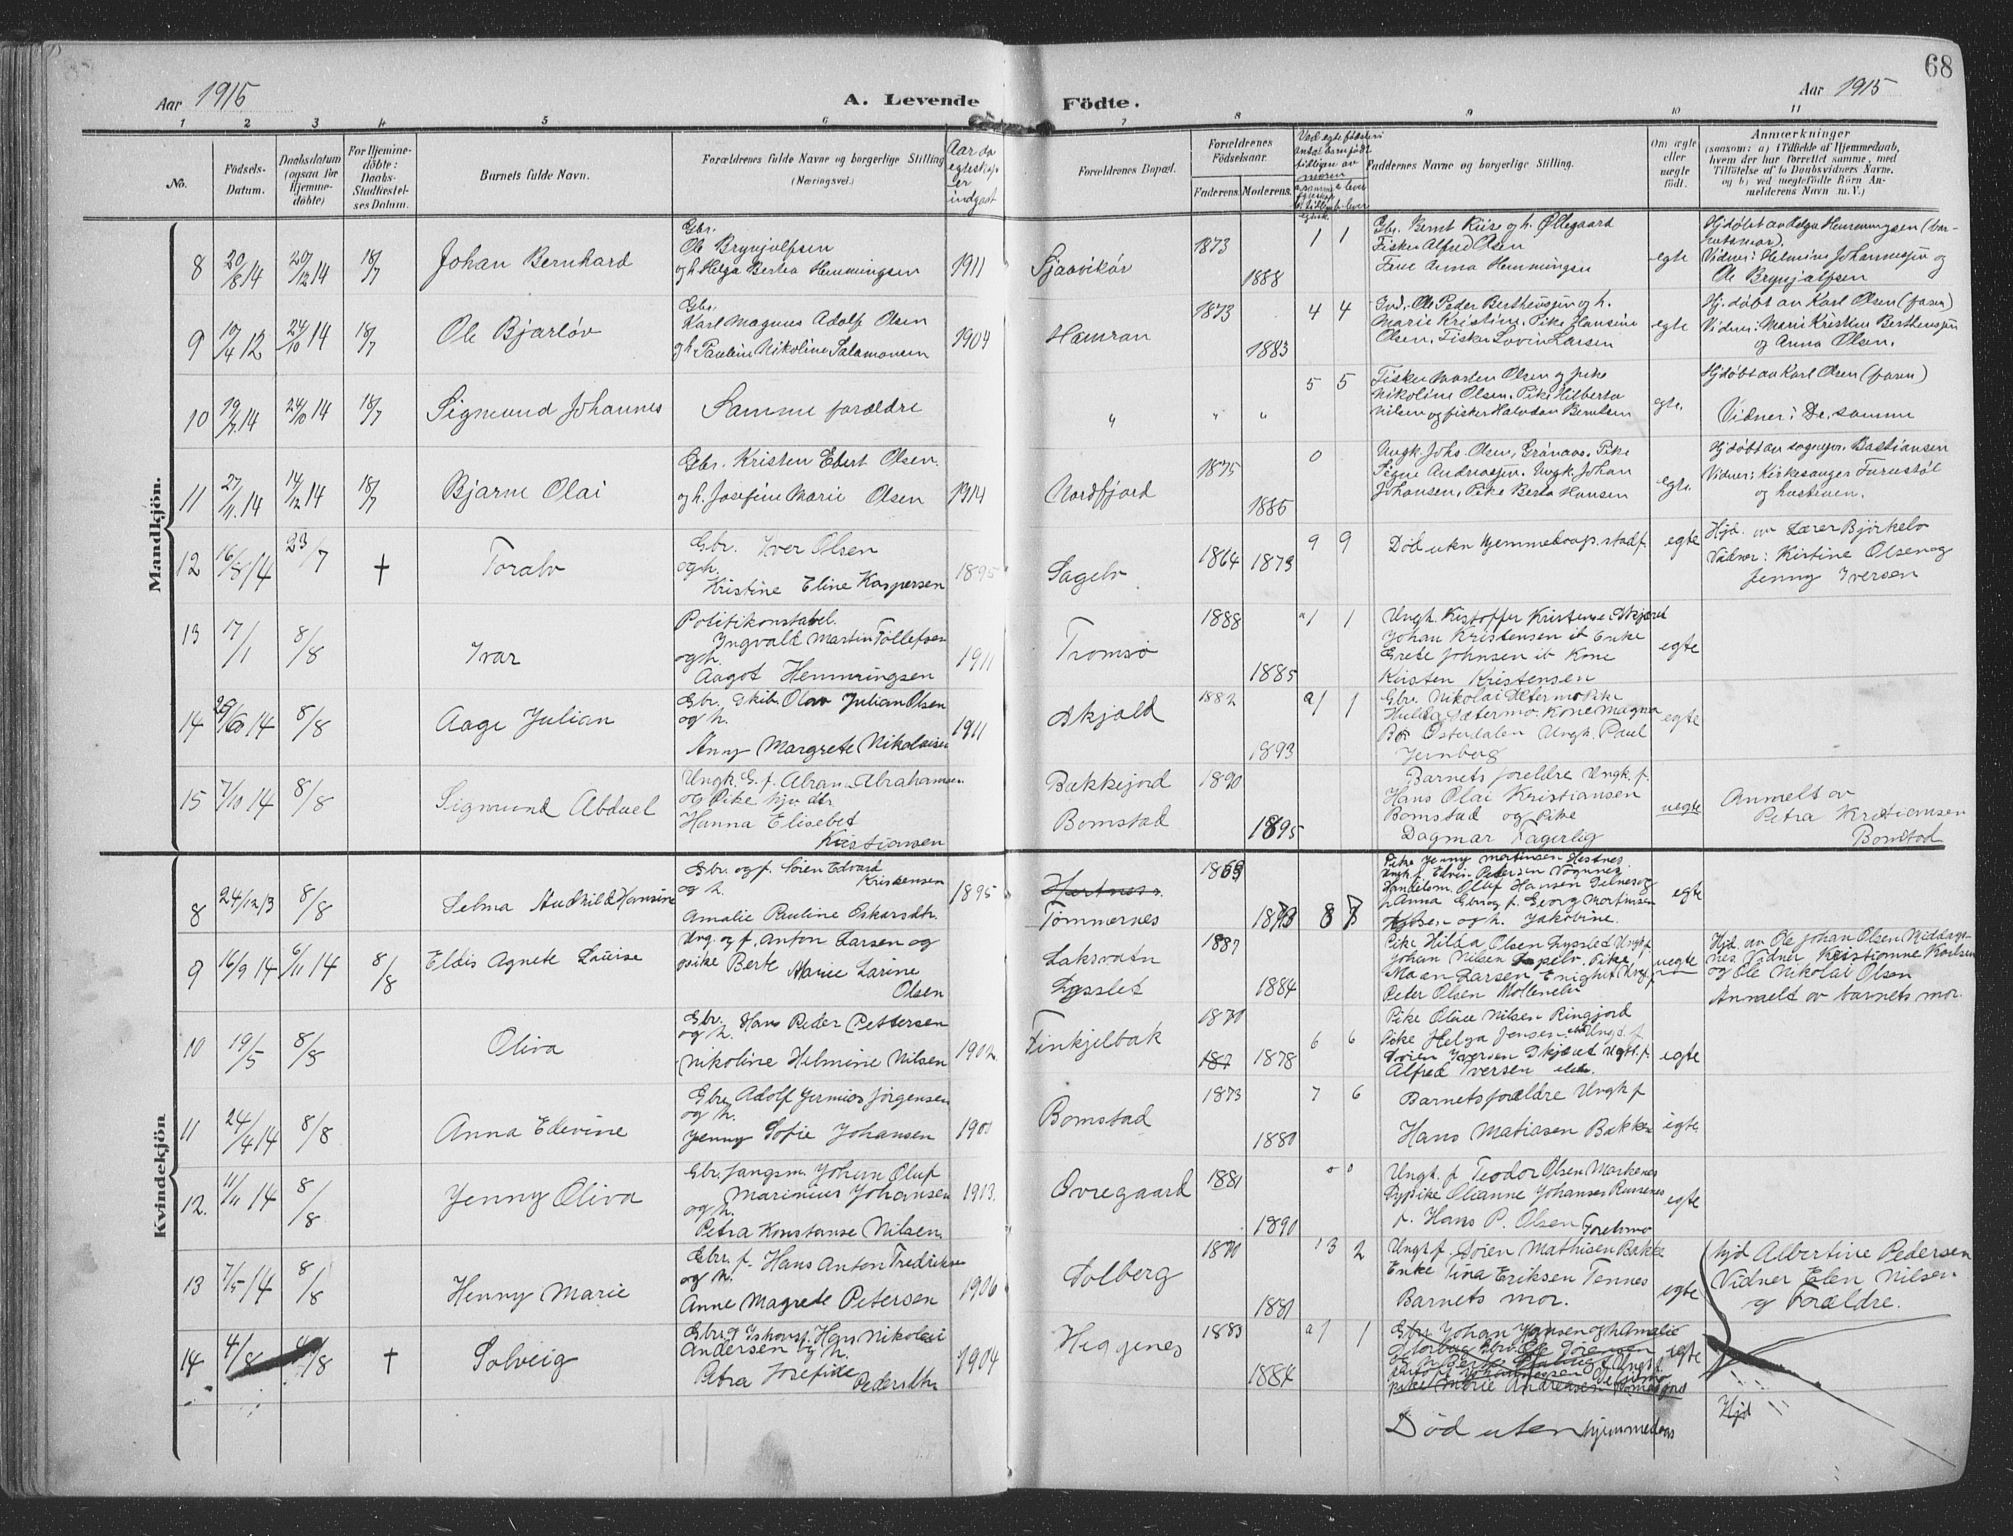 68
Aar 1915
A. Levende Födte.
Aar 1915
1 2 3 4 5 6 7 8 9 10 11
No.
Födsels-Datum.
Daabsdatum (ogsaa for Hjemme-döbte)
For Hjemme-döbte: Daabs-Stadfæstel-ses Datum.
Barnets fulde Navn.
Forældrenes fulde Navne og borgerlige Stilling (Næringsvei.)
Aar da egteskap er indgaat
Forældrenes Bopæl.
Forældrenes Födselsaar.
Faderens. Moderens.
Faddernes Navne og borgerlige Stilling.
Om ægte eller uægte födt.
Anmærkninger
(saasom: a) i Tilfælde af Hjemmedaab, hvem der har forrettet samme, med Tilföielse af to Daabsvidners Navne, og b) ved uegtefödte Börn An-melderens Navn m. V.)
Mandkjön.
8 20/8 14 20/12 14 18/7 Johan Bernhard
Gbr. Ole Brynjolfsen
og h. Helga Bertea Hemmingsen 1911
1873 1888 1 1
Gbr. Bernt Kiil og h. Øllegaard
Fisker Alfred Olsen
Frue Anna Hemmingsen
egte
Vidner: Helmine Johannesen og
Ole Brynjolfsen
9 19/4 12 24/10 14 18/7 Ole Bjarløv
Gbr. Karl Magnus Adolf Olsen
og h. Pauline Nikoline Salamonsen 1904
Hamran 1873 1883 4 4
Ole Peder Bertheussen og h.
Marie Kristine. Pike Hansine
Olsen. Fisker Lovin Larsen
egte
Hj. døbt av Karl Olsen (faren)
Vidner: Marie Kristine Bertheussen
og Anna Olsen.
10 24/10 14 18/7 Sigmund Johannes
Samme forældre
" " " 5 5
Fisker Morten Olsen og pike
Nikoline Olsen. Pike Hilberta
Nilsen og fisker Halvdan Berntsen
egte.
Hjdøbt av Karl Olsen (faren)
Vidner: De samme
11 27/11 14 14/12 14 18/7 Bjarne Olai
Gbr. Kristen Ebert Olsen.
og h. Josefine Marie Olsen 1914
Nordfjord 1875 1885 0
Ungk. Johs. Olsen, Grånaas. Pike
Signe Andreassen. Ungk. Johan
Johansen. Pike Berta Hansen
egte
Hjdøbt av sogнepr. Bastiansen
Vidner: Kirkesanger Furustøl
og hustruen.
12 16/8 14 23/7 † Toralv
Gbr. Iver Olsen
og h.
Kristine Eline Kaspersen 1895
Sagelv 1864 1873 9 9
Død uten hjemmedaap. stadf.
egte
Hjd. av Lærer Bjørkelv
Vidner: Kristine Olsen og
Jenny Iversen
13 17/1 8/8 Ivar
Politikonstabel.
Ingvald Martin Tollefsen
og h.
Aagot Hemmingsen 1911
Tromsø 1888 1885 a 1 1
Ungk. Kristoffer Kristensen
Johan Kristensen it Enke
Grete Johnsen it Kone
Kristen Kristensen
egte
14 29/10 14 8/8 Aage Julian
Gbr. Skib. Olav Julian Olsen
og h.
Anny Margrete Nikolaisen 1911
Skjold 1882 1893 a 1 1
Gbr. Nikolai Sætermo Pike
Hulda Sætermo. Kone Magna
Bø Østerdalen Ungk. Paul
Jernberg
egte
15 7/10 14 8/8 Sigmund Abduel
Ungk. G. f. Abran Abrahamsen
og Pike hjv. dtr.
Hanna Elisebet
Kristiansen
Bakkejord
Bomstad 1890 1895
Barnets foreldre Ungk. f.
Hans Olai Kristiansen
Bomstad og Pike
Dagmar Fagerlig
uegte
Anmelt av
Petra Kristiansen
Bomstad
Kvindekjön
8 24/12 13 8/8 Selma Audhild Hansine
Gbr. og f. Sören Edvard
Kristensen
og h.
Amalie Pauline Oskarsdtr. 1895
Hertnes
Tømmernes 1869 8 7
Pike Jenny Mortinsen Hestnes.
Ungk. f. Edvin Pedersen Vognnes
Handelsm. Oluf Hansen
og h. Jakobine.
egte
9 16/9 14 6/11 14 8/8 Eldis Agnete Lovise
Ung. og f. Anton Larsen og
pike Berte Marie Larine
Olsen
Laksvatn
Lysslet 1887 1884
Pike Hilda Olsen Lysslet Ungk. f.
Johan Nilsen Sagelv. Pike
Larsen Enighet Ungk. f
Peter Olsen Mollenelv
uegte
Hjd. av Ole Johan Olsen Middags-
nes Vidner Kristianne Karlsen
og Ole Nikolai Olsen
Anmelt av barnets mor.
10 19/5 8/8 Oliva
Gbr. Hans Peder Pettersen
og h.
Nikoline Helmine Nilsen 1902
Finkjelbak 1870 187 1878 6 6
Pike Olise Nilsen Ringjord
Pike Helga Jensen Ungk. f.
Søren Iversen Skjæret Ungk. f.
Alfred Iversen
egte
11 24/4 14 8/8 Anna Edevine
Gbr. Adolf Jermias Jörgensen
og h.
Jenny Sofie Johansen
Bomstad 1873 1880 7 6
Barnets forældre Ungk f
Hans Matiasen Bakken
egte
12. 11/11 14 8/8 Jenny Oliva
Gbr. fangsm. Johan Oluf
Marinius Johansen
og h.
Petra Konstanse Nilsen. 1913.
Øvregaard 1881 1890 0 0
Ungk. f. Teodor Olsen Markenes
Pike Olianne Johansen Russenes
f. Hans P. Olsen
egte
13 7/5 14 8/8 Henny Marie
Gbr. f. Hans Anton Fredriksen
og h.
Anne Magrete Petersen 1906
Solberg 1870 1881 3 2
Ungk f. Sören Mathisen Bakke
Enke Tina Eriksen Tennes
Barnets mor.
egte
hjd Albertine Pedersen
Vidner Elen Nilsen
og Forældre.
14 4/8 8 † Solveig
Hans Nikolai
Andersen og h.
Petra Josefine
Pedersdtr. 1904
Heggenes 1883 1884 a 1 1
Gbr. Johan Hansen og h. Amalie
egte
Hjd
Død uten hjemmedaab